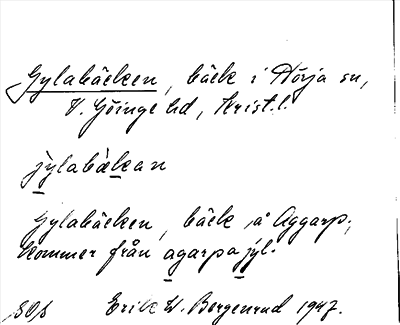 Gylabäcken, bäck i Nörja sn,
V. Göinge hd, Krist.l.
jylabäkan
Gylabäcken, bäck å Aggarp,
kommer från agarpa jyl.
Erik W. Borgenrud 1947.